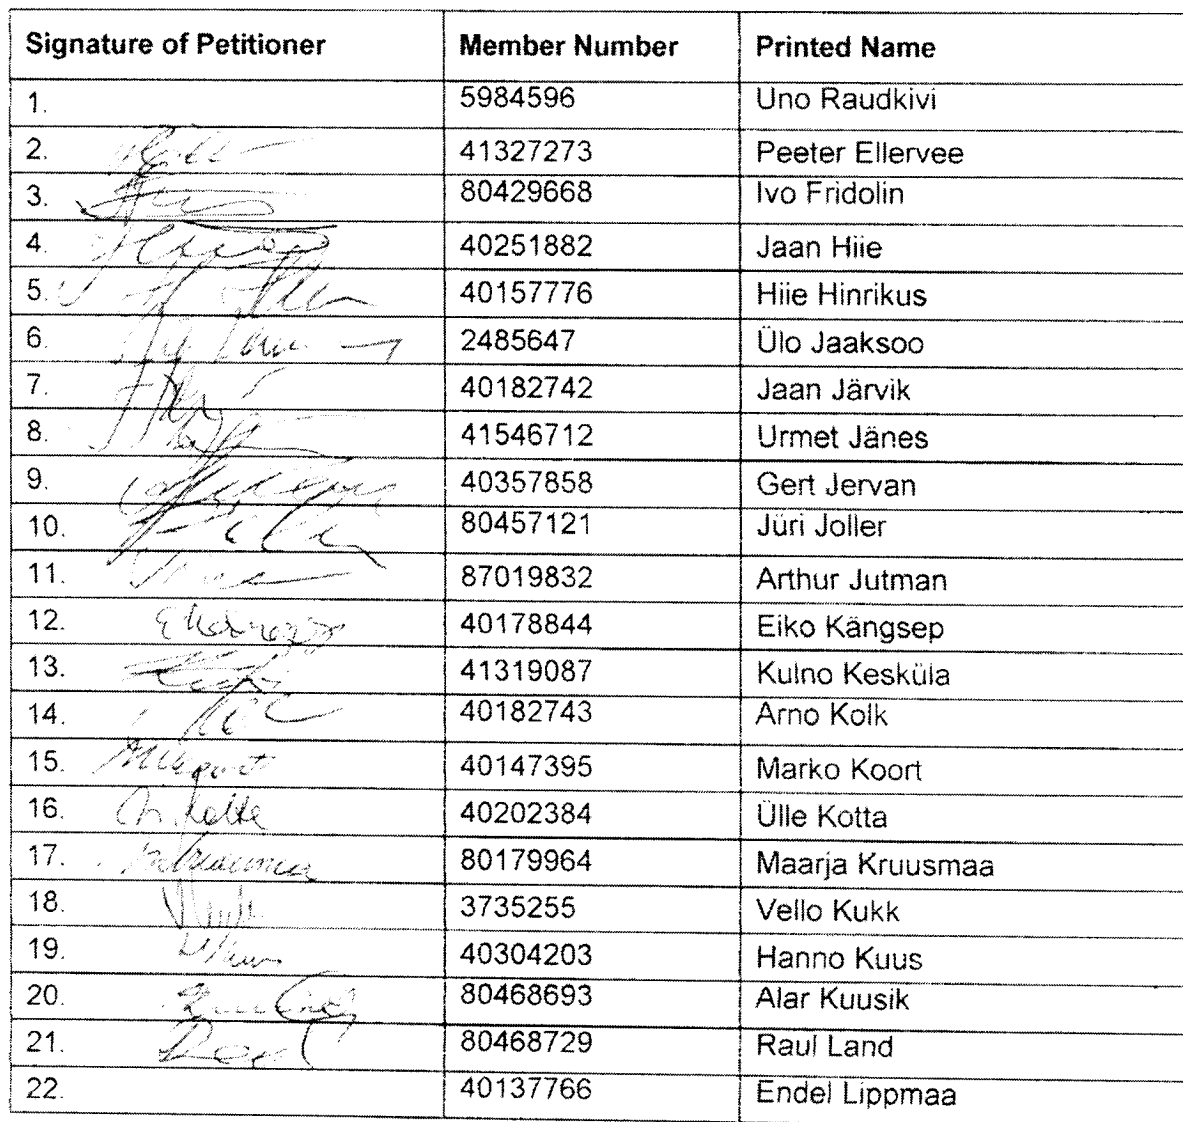 Signature of Petitioner Member Number Printed Name
1. 5984596 Uno Raudkivi
2. 41327273 Peeter Ellervee
3. 80429668 Ivo Fridolin
4. 40251882 Jaan Hiie
5. 40157776 Hiie Hinrikus
6. 2485647 Ülo Jaaksoo
7. 40182742 Jaan Järvik
8. 41546712 Urmet Jänes
9. 40357858 Gert Jervan
10. 80457121 Jüri Joller
11. 87019832 Arthur Jutman
12. 40178844 Eiko Kängsep
13. 41319087 Kulno Kesküla
14. 40182743 Arno Kolk
15. 40147395 Marko Koort
16. 40202384 Ülle Kotta
17. 80179964 Maarja Kruusmaa
18. 3735255 Vello Kukk
19. 40304203 Hanno Kuus
20. 80468693 Alar Kuusik
21. 80468729 Raul Land
22. 40137766 Endel Lippmaa